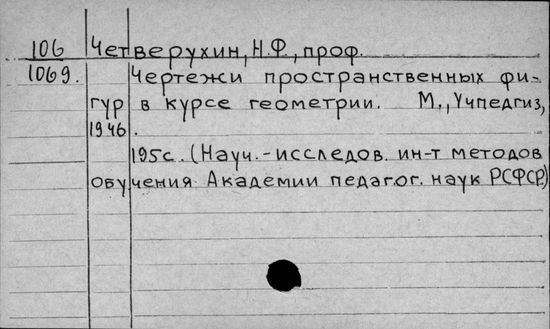 106 Четверухин, Н.Ф., проф.
1069. Чертежи пространственных фи-
гур в курсе геометрии. М., Учпедгиз,
1946.
195с. (Науч.-исследов. ин-т методов
обучения Академии педагог. наук РСФСР.)